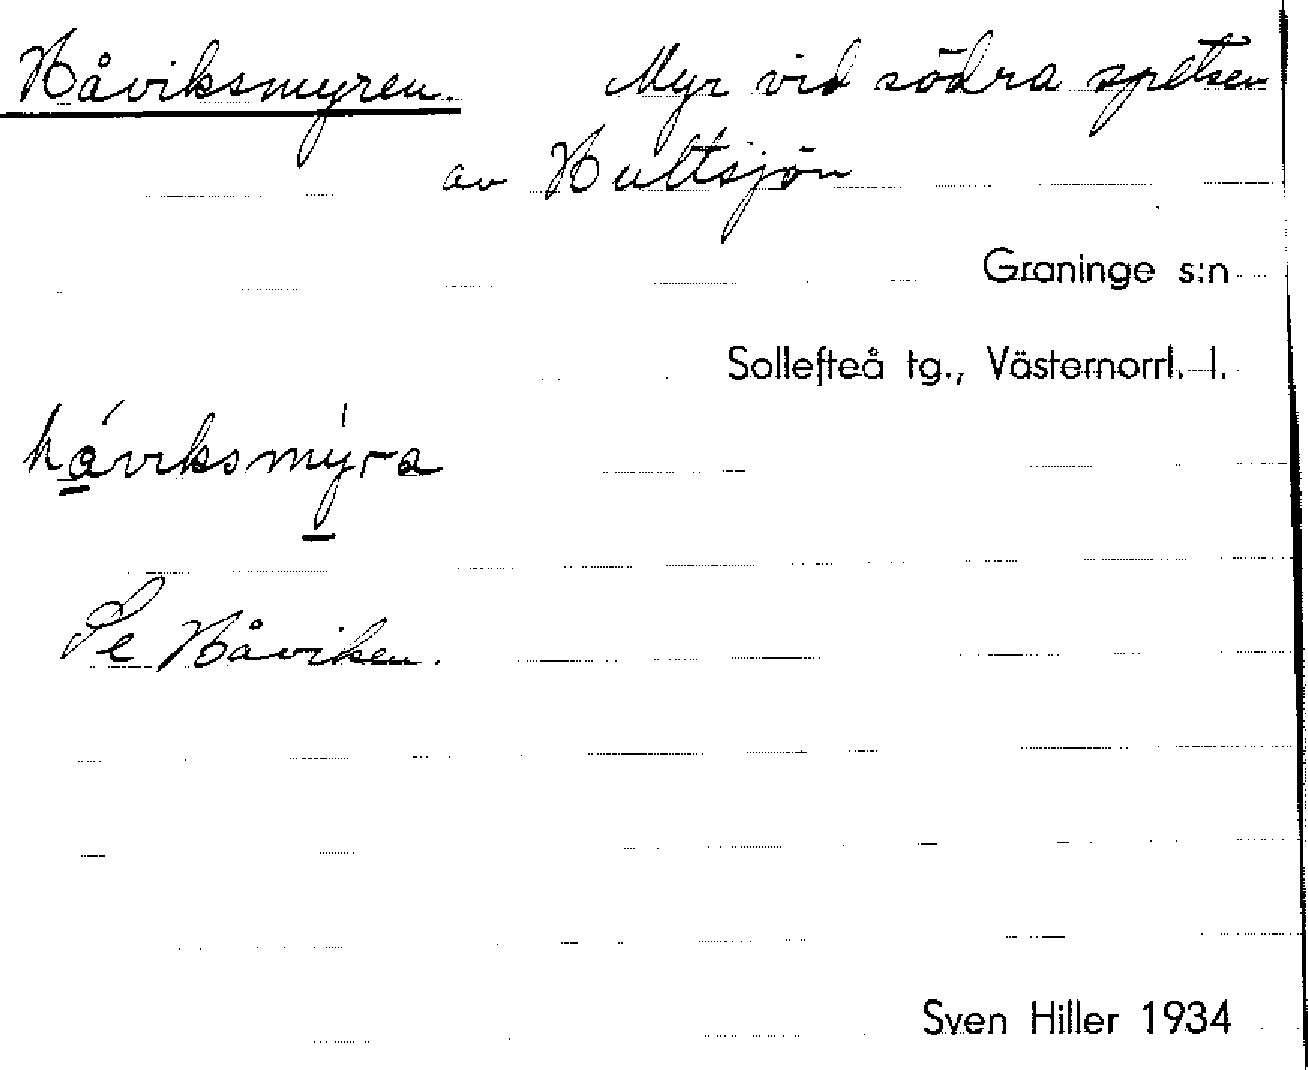 Håviksmyren. Myr vid södra spetsen
av Hultsjön
Graninge s:n
Sollefteå tg., Västernorrl. l.
håviksmýra
Se Håviken.
Sven Hiller 1934